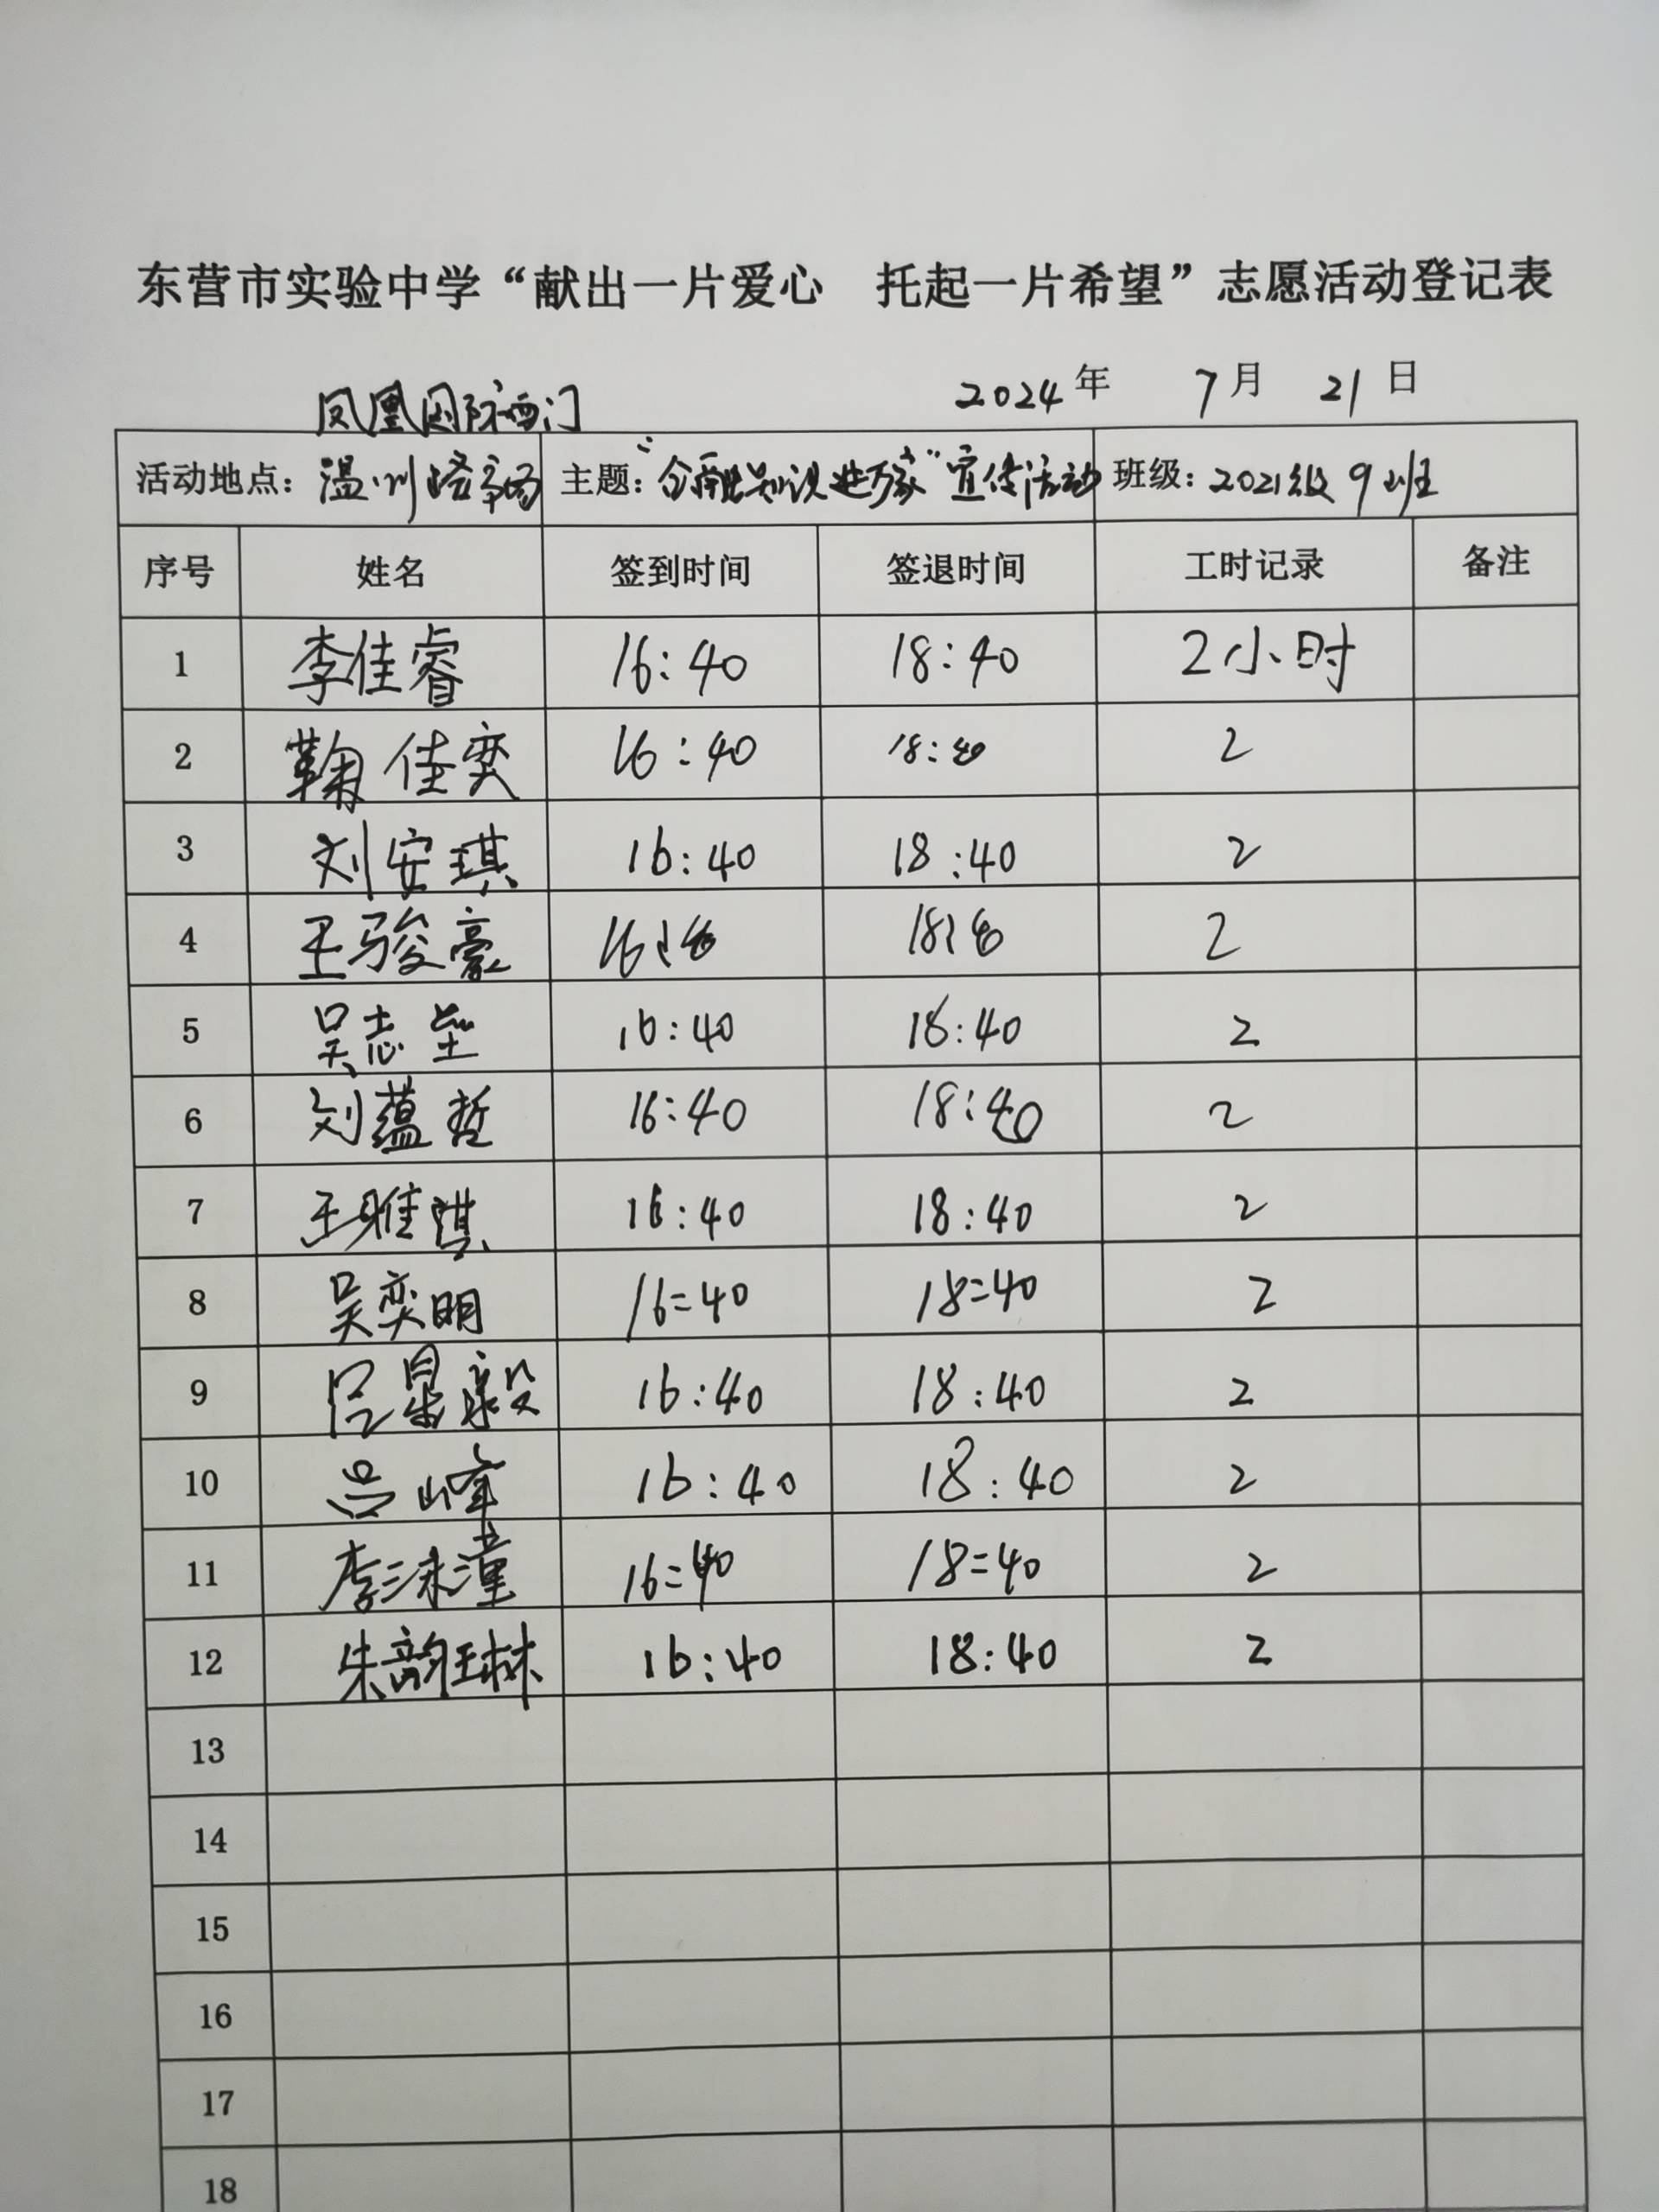 东营市实验中学“献出一片爱心 托起一片希望”志愿活动登记表
2024年 7月 21日
凤凰国际西门
活动地点：温州路 主题：“金融知识进万家”宣传活动 班级：2021级9班
序号 姓名 签到时间 签退时间 工时记录 备注
1 李佳睿 16:40 18:40 2小时
2 鞠佳奕 16:40 18:40 2
3 刘安琪 16:40 18:40 2
4 王骏豪 16:40 18:40 2
5 吴志垒 16:40 18:40 2
6 刘蕴哲 16:40 18:40 2
7 王雅琪 16:40 18:40 2
8 吴奕明 16:40 18:40 2
9 吕昊毅 16:40 18:40 2
10 吕峰 16:40 18:40 2
11 李沫潼 16:40 18:40 2
12 朱韵琳 16:40 18:40 2
13
14
15
16
17
18